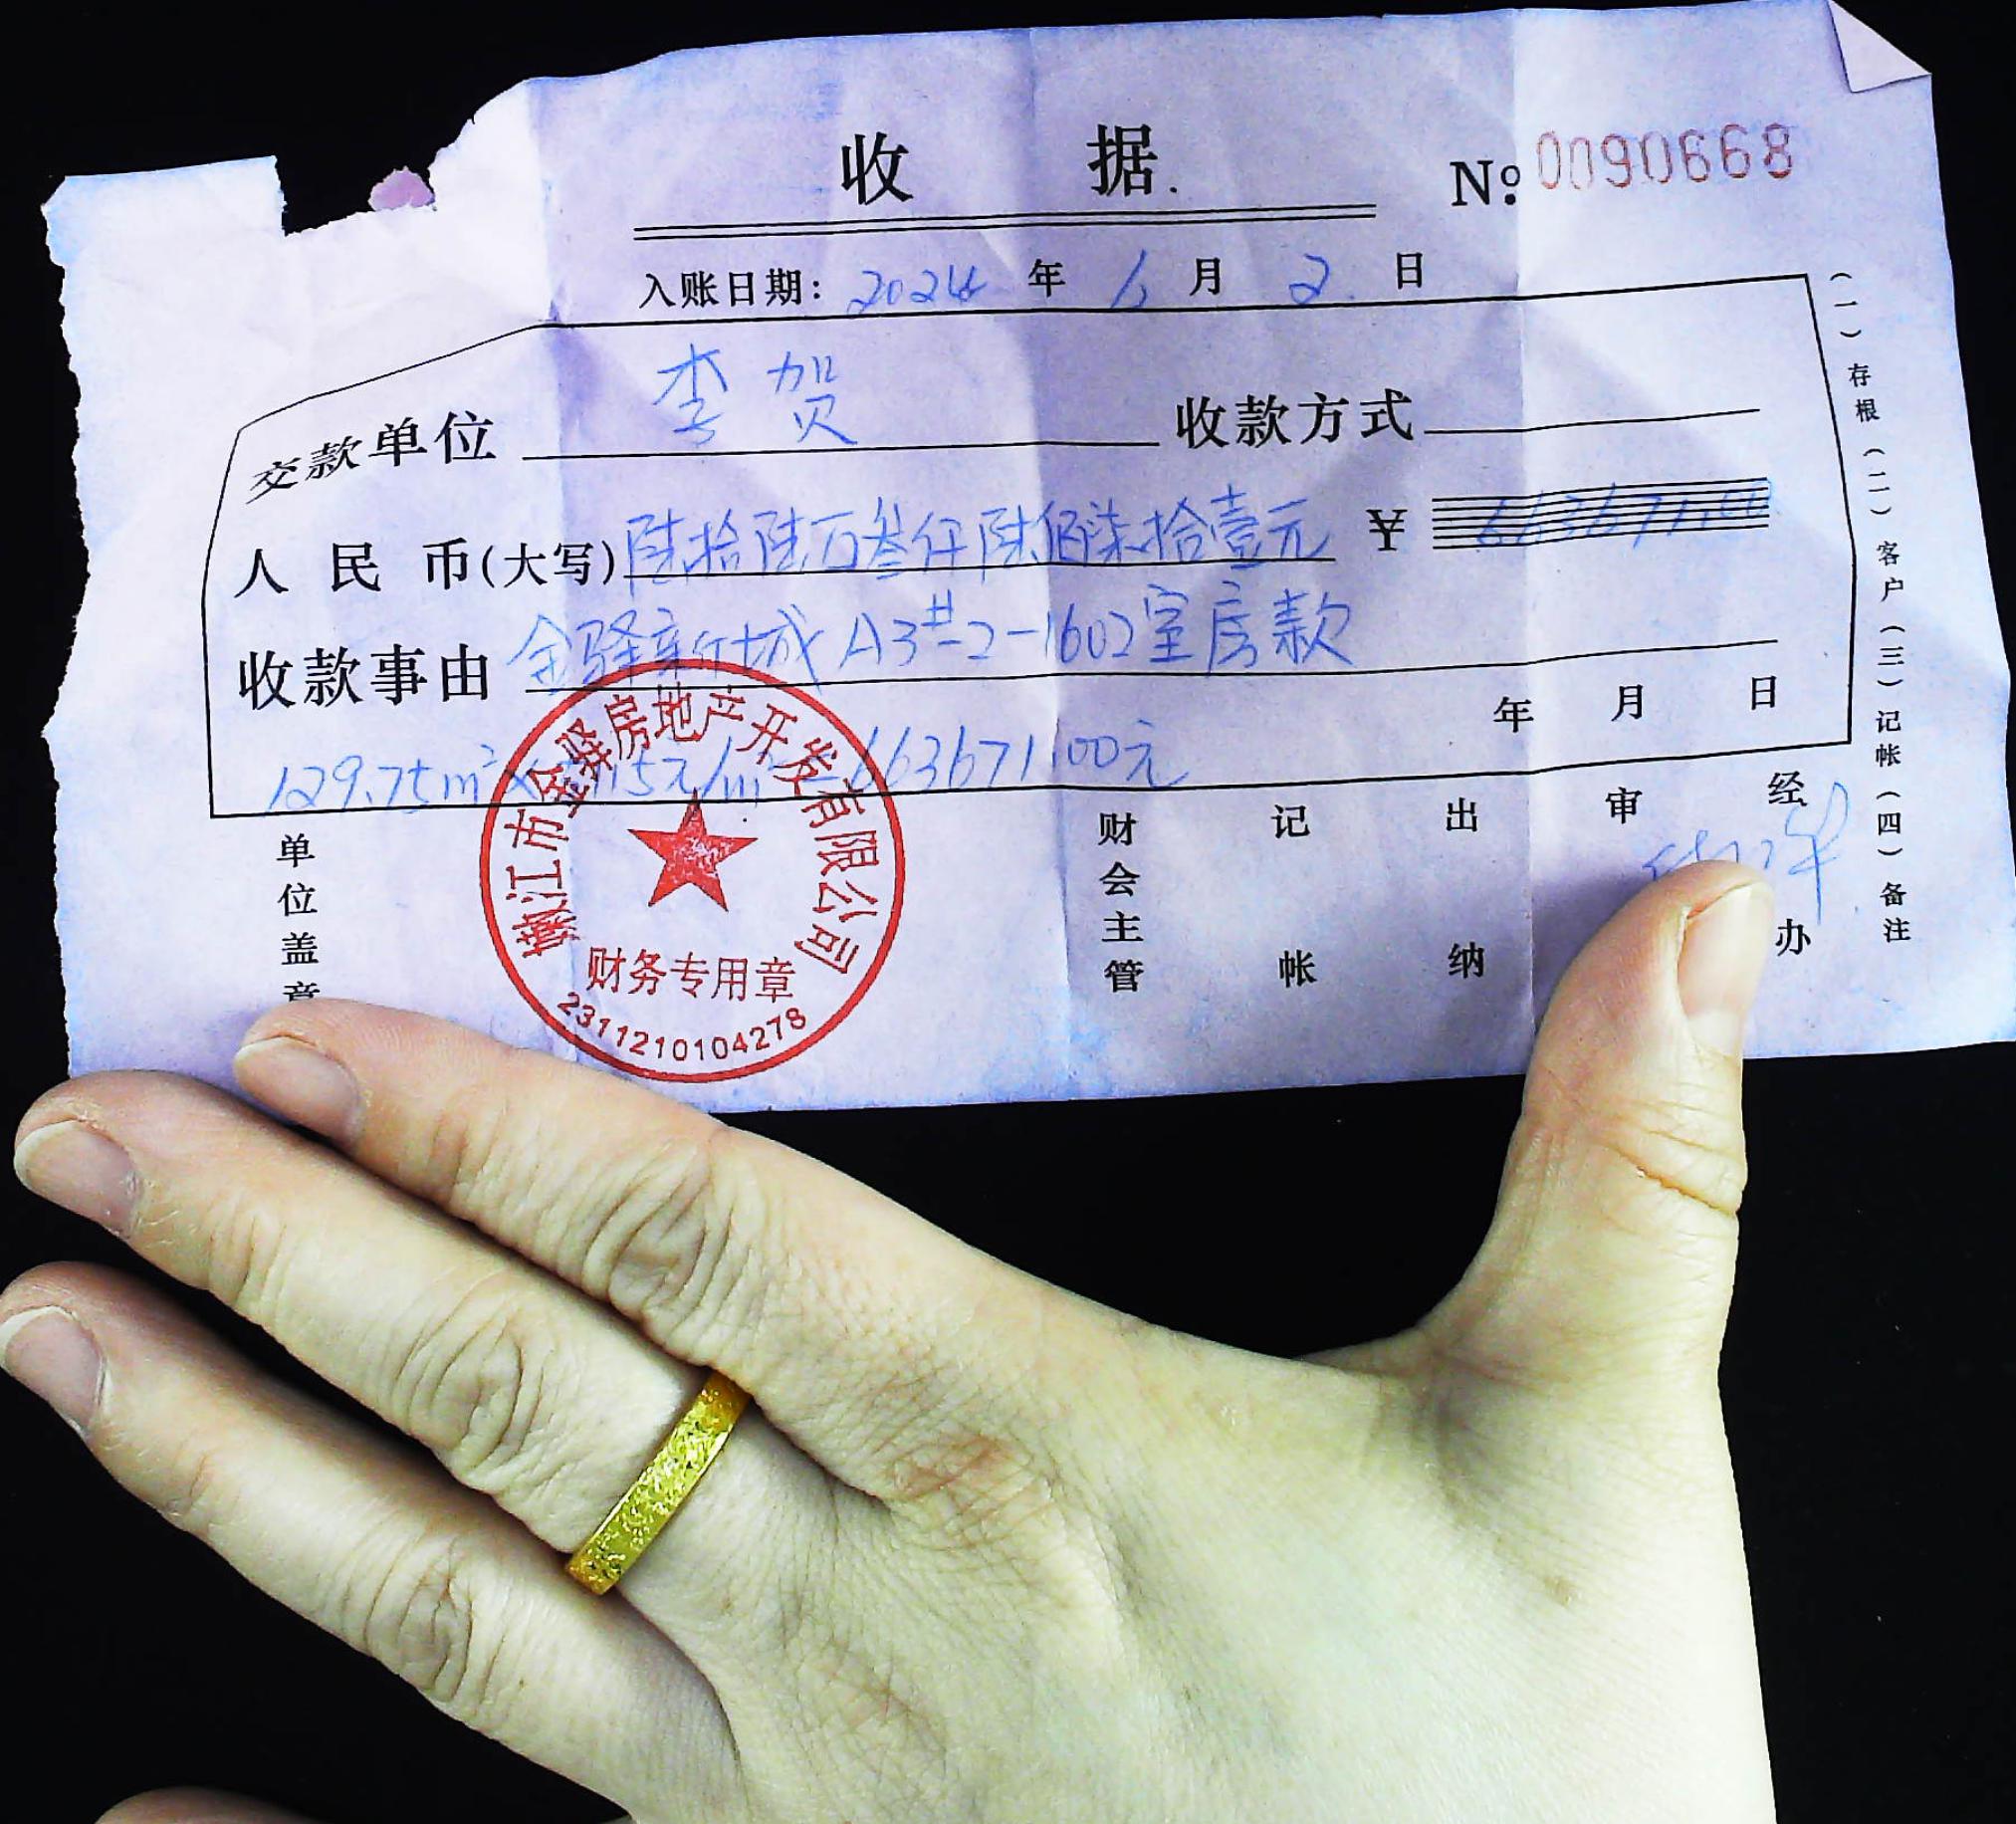 收 据
№ 0090668
入账日期: 2024 年 6 月 2 日
交款单位 李贺 收款方式
人民币(大写) 陆拾陆万叁仟陆佰柒拾壹元 ¥ 663671.00
收款事由 金驿新城A3#-2-1602室房款
年 月 日
129.75m² 15元/m² 663671.00元
单位盖章
财会主管 记帐 出纳 审 经办
(一)存根(二)客户(三)记帐(四)备注
嫩江市金驿房地产开发有限公司
财务专用章
2311210104278